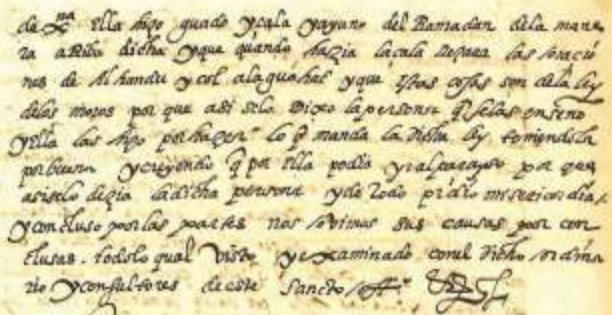 de X.na ella hizo guado y cala y ayuno del Ramadan de la mane
ra arriba dicha y que quando hazia la cala rezava las oracio
nes de Alhandu y col alaguhat y que estas cosas son de la ley
delos moros por que asi selo dixo la persona q̃ selas enseño
y ella las hizo por hazer lo q̃ manda la dicha ley teniendola
por buena y creyendo q̃ por ella podia yr al parayso por que
asi selo dezia la dicha persona y de todo pidio misericordia,
y concluso por las partes nos ovimos sus causas por con
clusas. todo lo qual visto y examinado con el dicho ordina
rio y consultores deste Sancto off.º